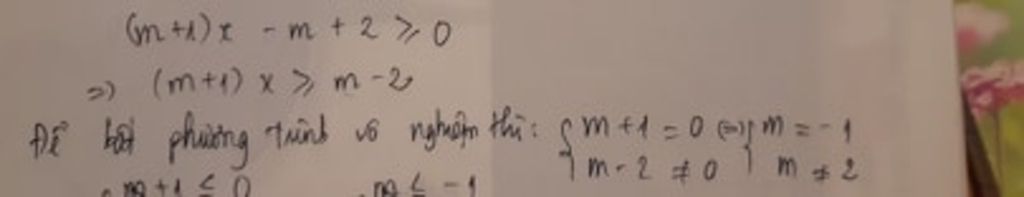 (m+1)x - m + 2 ⩾ 0
=> (m+1) x ⩾ m - 2
Để bất phương trình vô nghiệm thì: { m + 1 = 0 (=) { m = - 1
m - 2 ≠ 0 m ≠ 2
m + 1 ≤ 0 m ≤ - 1